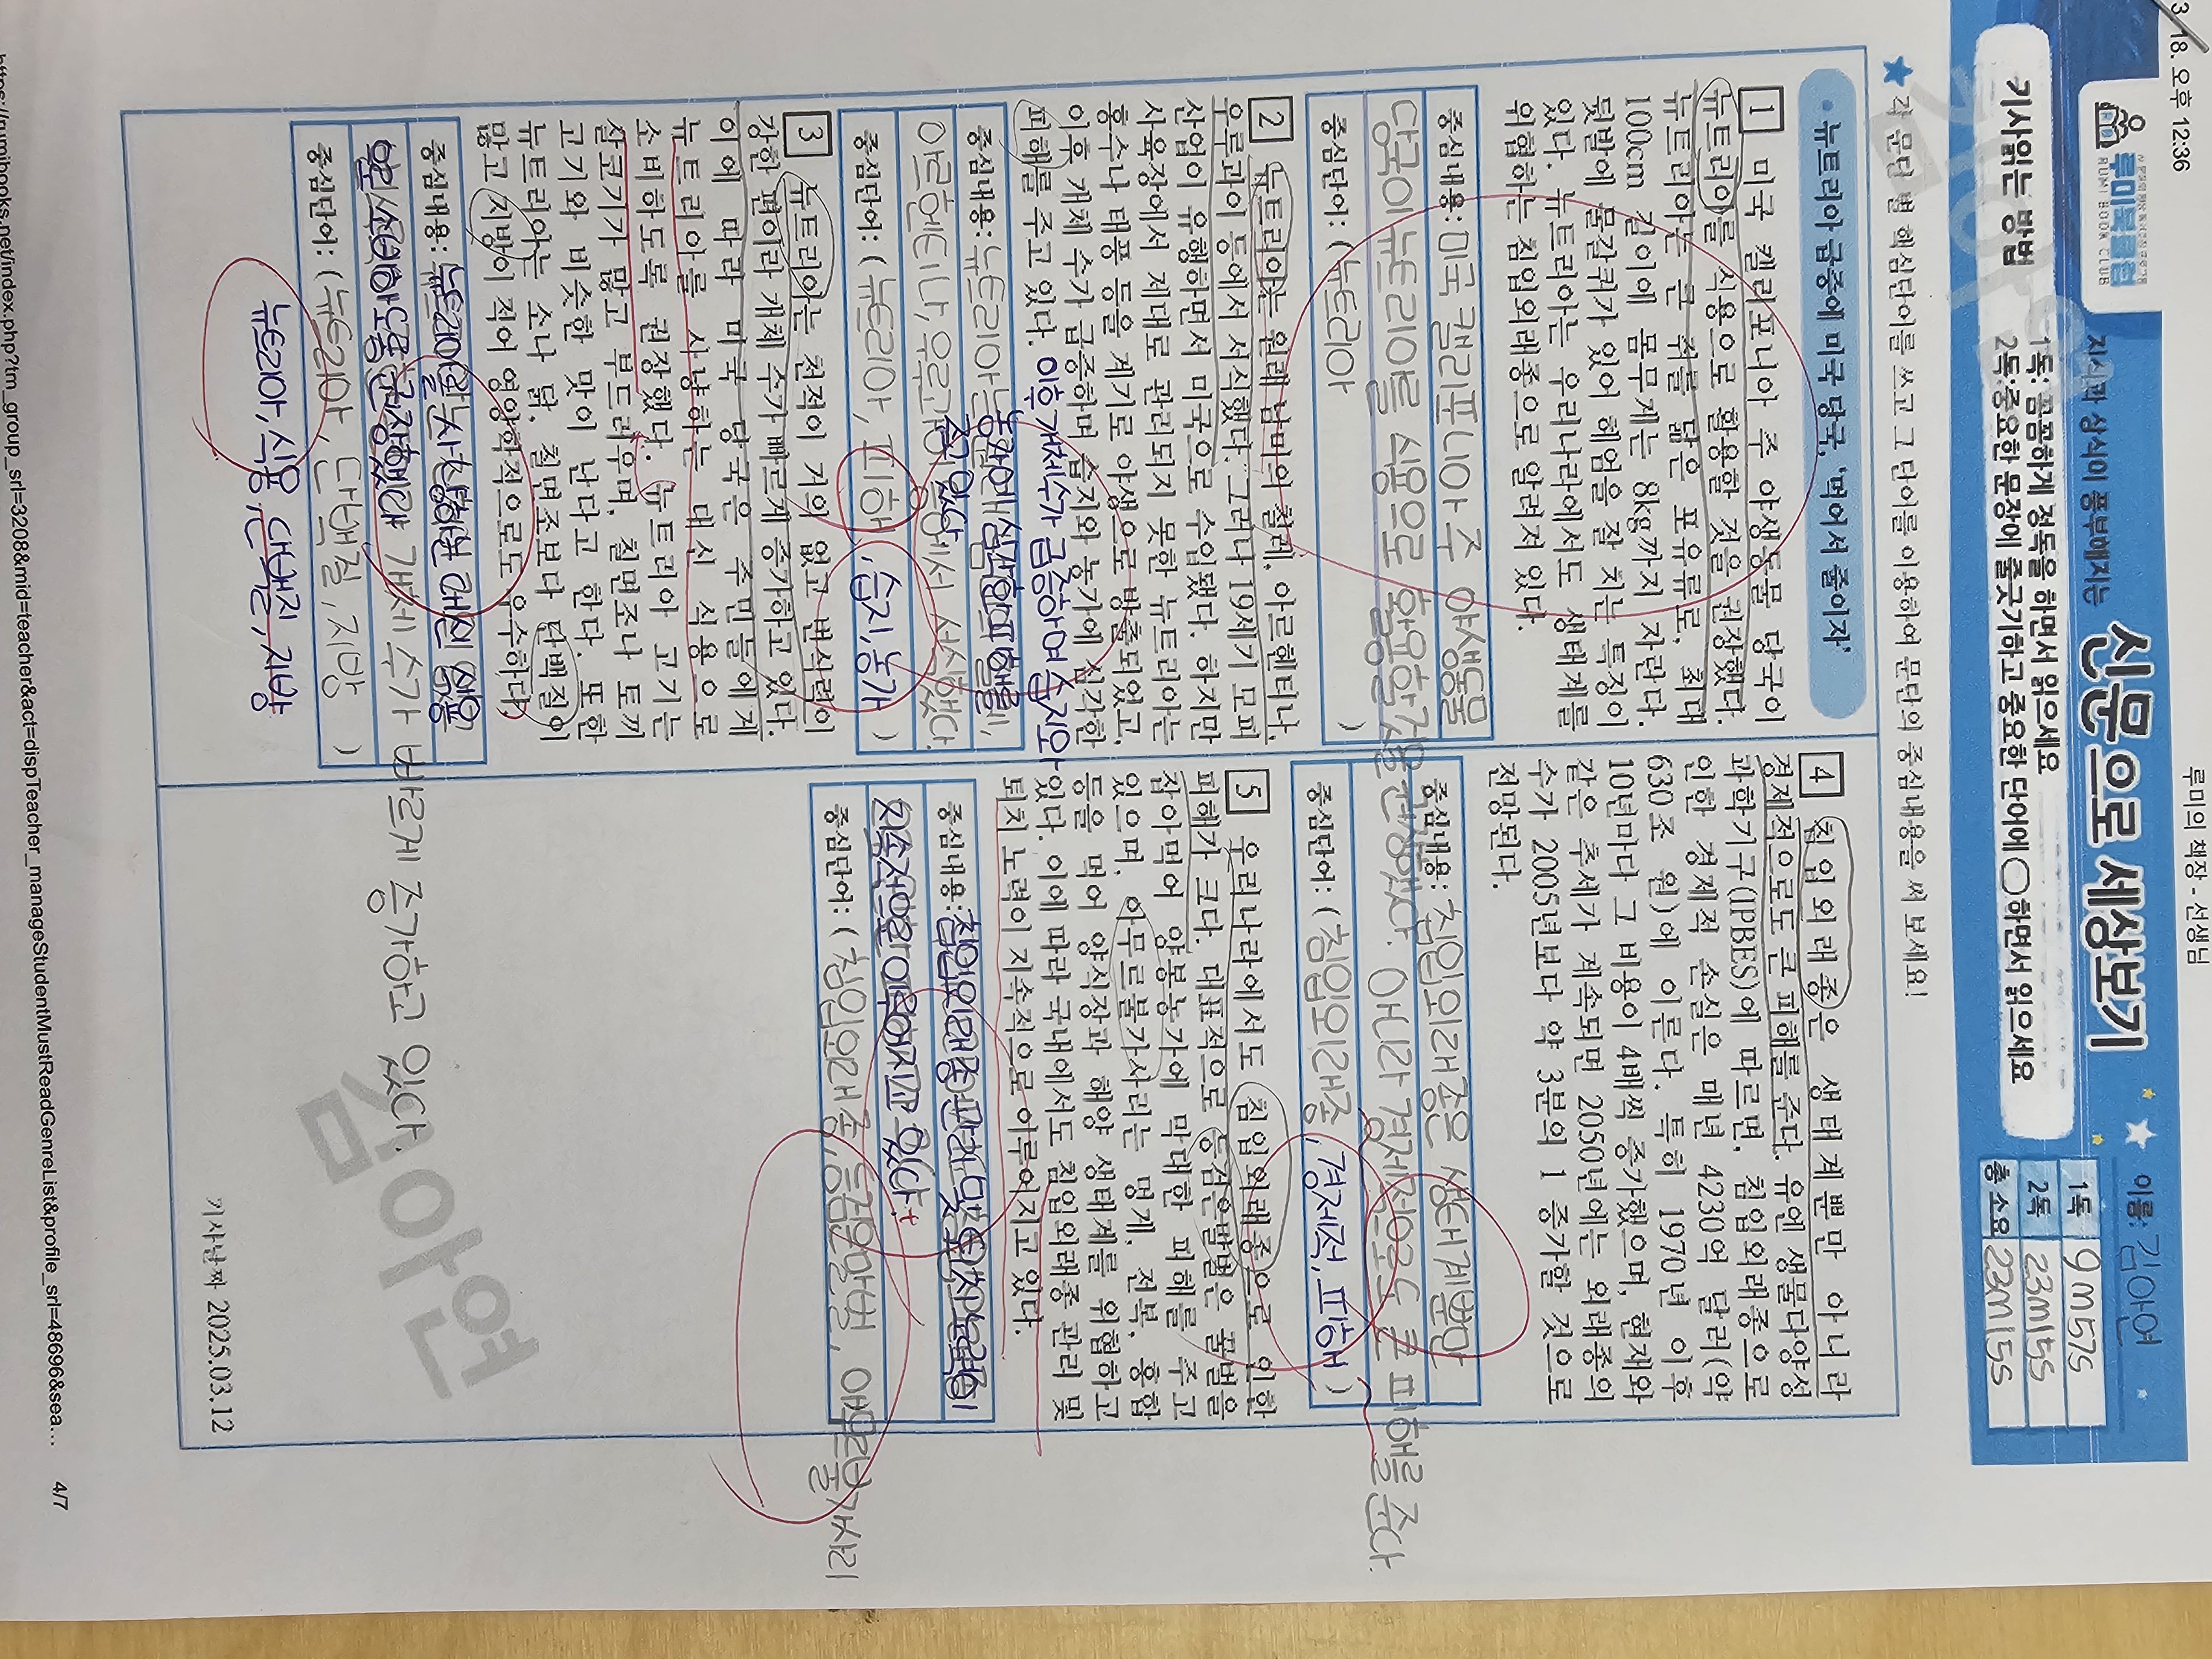 3. 18. 오후 12:36
루미의 책장 - 선생님
루미북클럽
RUMI BOOK CLUB
지식과 상식이 풍부해지는
신문으로 세상보기
기사읽는 방법
1독: 꼼꼼하게 정독을 하면서 읽으세요
2독:중요한 문장에 줄긋기하고 중요한 단어에 ○하면서 읽으세요
이름: 김아연
1독 9m57s
2독 23m15s
총 소요 23m15s
★ 각 문단 별 핵심단어를 쓰고 그 단어를 이용하여 문단의 중심내용을 써 보세요!
• 뉴트리아 급증에 미국 당국, '먹어서 줄이자'
1 미국 캘리포니아 주 야생동물 당국이
뉴트리아를 식용으로 활용할 것을 권장했다.
뉴트리아는 큰 쥐를 닮은 포유류로, 최대
100cm 길이에 몸무게는 8kg까지 자란다.
뒷발에 물갈퀴가 있어 헤엄을 잘 치는 특징이
있다. 뉴트리아는 우리나라에서도 생태계를
위협하는 침입외래종으로 알려져 있다.
중심내용: 미국 캘리포니아 주 야생동물
당국이 뉴트리아를 식용으로 활용할 것을 권장했다.
중심단어: ( 뉴트리아 )
2 뉴트리아는 원래 남미의 칠레, 아르헨티나,
우루과이 등에서 서식했다. 그러나 19세기 모피
산업이 유행하면서 미국으로 수입됐다. 하지만
사육장에서 제대로 관리되지 못한 뉴트리아는
홍수나 태풍 등을 계기로 야생으로 방출되었고,
이후 개체 수가 급증하며 습지와 농가에 심각한
피해를 주고 있다.
이후 개체수가 급증하며 습지와
중심내용: 뉴트리아는
농가에 심각한 피해를
주고 있다
아르헨티나, 우루과이 등에서 서식했다.
중심단어: ( 뉴트리아, 피해, 습지, 농가 )
3 뉴트리아는 천적이 거의 없고 번식력이
강한 편이라 개체 수가 빠르게 증가하고 있다.
이에 따라 미국 당국은 주민들에게
뉴트리아를 사냥하는 대신 식용으로
소비하도록 권장했다. 뉴트리아 고기는
살코기가 많고 부드러우며, 칠면조나 토끼
고기와 비슷한 맛이 난다고 한다. 또한
뉴트리아는 소나 닭, 칠면조보다 단백질이
많고 지방이 적어 영양학적으로도 우수하다.
중심내용: 뉴트리아를 사냥하는 대신 식용
으로 소비하도록 권장했다 개체 수가 빠르게 증가하고 있다.
중심단어: ( 뉴트리아, 단백질, 지방 )
뉴트리아, 식용, 단백질, 지방
4 침입외래종은 생태계뿐만 아니라
경제적으로도 큰 피해를 준다. 유엔 생물다양성
과학기구(IPBES)에 따르면, 침입외래종으로
인한 경제적 손실은 매년 4230억 달러(약
630조 원)에 이른다. 특히 1970년 이후
10년마다 그 비용이 4배씩 증가했으며, 현재와
같은 추세가 계속되면 2050년에는 외래종의
수가 2005년보다 약 3분의 1 증가할 것으로
전망된다.
중심내용: 침입외래종은 생태계뿐만
아니라 경제적으로도 큰 피해를 준다.
중심단어: ( 침입외래종, 경제적, 피해 )
5 우리나라에서도 침입외래종으로 인한
피해가 크다. 대표적으로 등검은말벌은 꿀벌을
잡아먹어 양봉농가에 막대한 피해를 주고
있으며, 아무르불가사리는 멍게, 전복, 홍합
등을 먹어 양식장과 해양 생태계를 위협하고
있다. 이에 따라 국내에서도 침입외래종 관리 및
퇴치 노력이 지속적으로 이루어지고 있다.
중심내용: 침입외래종 관리 및 퇴치 노력이
지속적으로 이루어지고 있다.
중심단어: ( 침입외래종, 등검은말벌, 아무르불가사리
김아연
기사날짜 2025.03.12
https://rumibooks.net/index.php?tm_group_srl=3208&mid=teacher&act=dispTeacher_manageStudentMustReadGenreList&profile_srl=48696&sea...
4/7